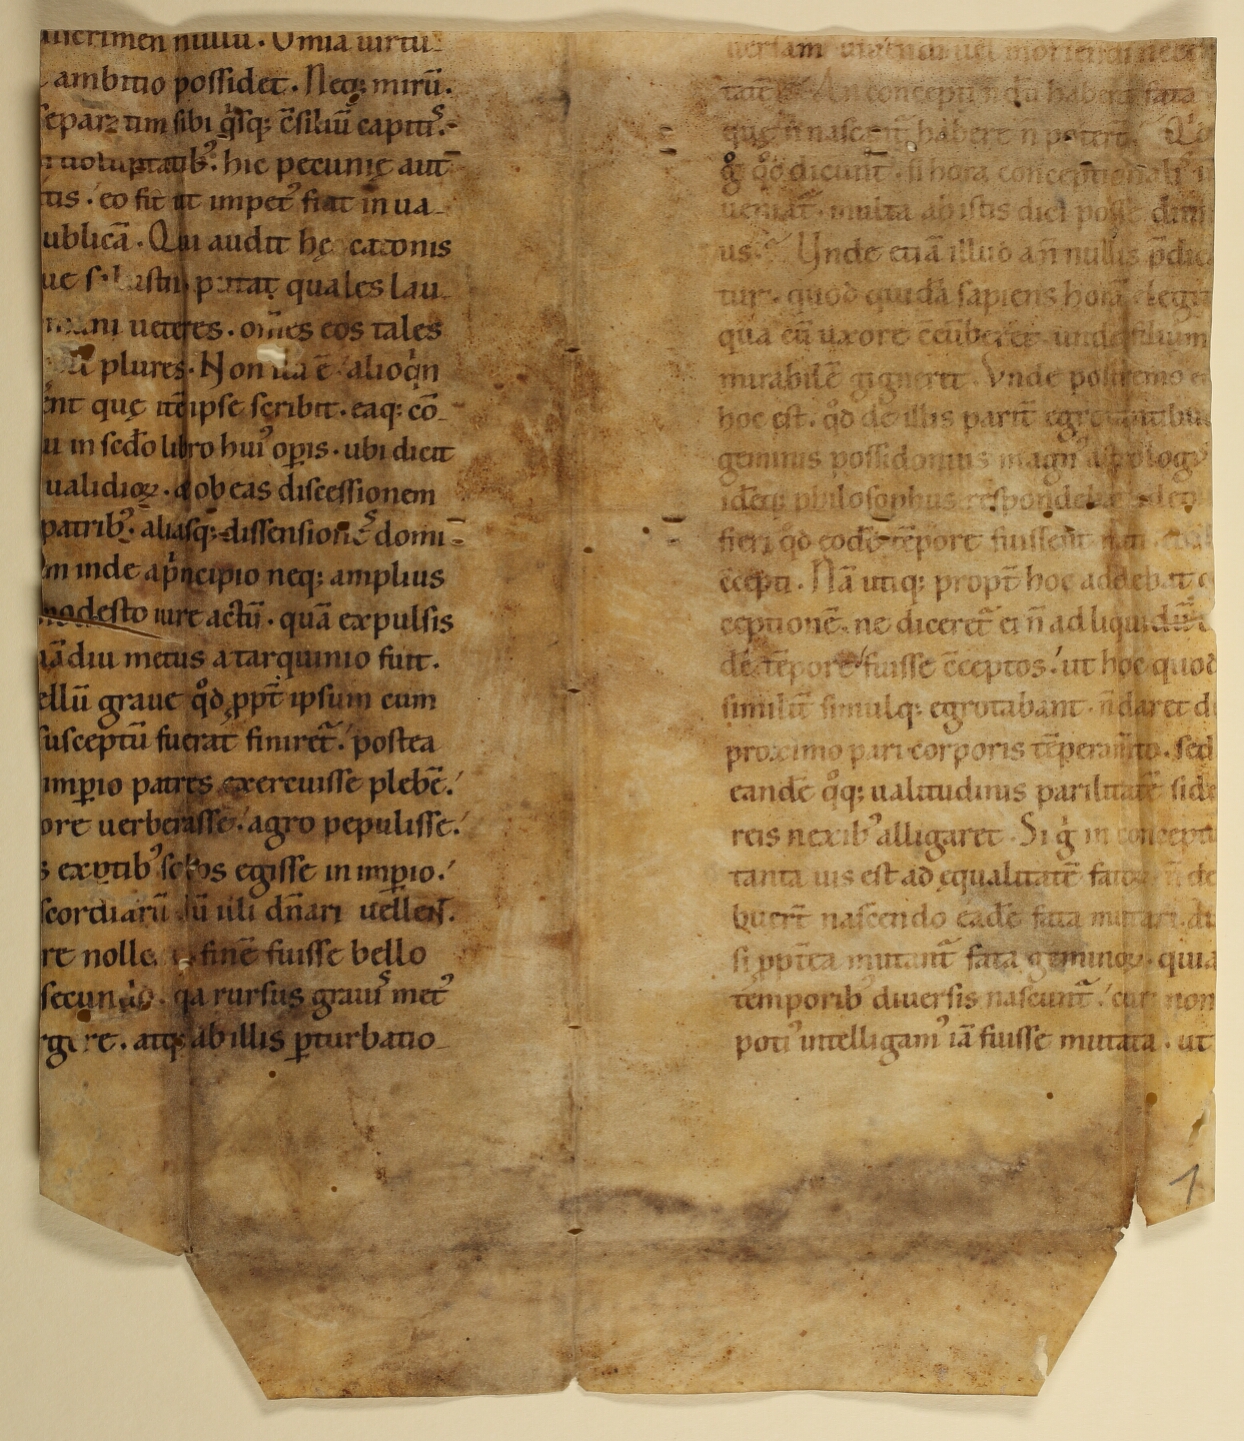 discrimen nullū. Omia uirtu-
ambitio possidet. Neq; mirū.
separatim sibi q̇sq; c̄siliū capitis.
uoluptatib᾿. hic pecunię aut
tis. eo fit ut impet᾿ fiat in ua-
ublicā. Qui audit hę catonis
ue salustii putat quales lau-
mani ueteres. om̄es eos tales
plures. Non ita ē. alioq̇n
ent quę itē ipse scribit. eaq; cō-
u in sed̄o libro hui᾿ op̱is. ubi dicit
ualidioꝝ. & ob eas discessionem
patrib᾿. aliasq; dissensiones domi
m inde a ṗncipio neq; amplius
modesto iure actū. quā expulsis
diu metus a tarquinio fuit.
ellū graue qod ppt̄ ipsum cum
susceptū fuerat finiret᾿. postea
imp̱io patres exercuisse plebē.
ore uerberasse. agro pepulisse.
s ex p̱tib᾿ solos egisse in imp̱io.
scordiarū dū illi dn̄ari uellent.
re nolle. finē fuisse bello
secundo. q̄a rursus grauis met᾿
rgere. atq; ab illis p̱turbatio-
An concepti n̄dū habent fata
quę n̄ nascant̄ habere n̄ poter̄t. Qd
g̊ qod dicunt. si hora conceptionalis
ueniat. multa ab istis dici posse
us. Unde etiā illud a n̄nullis p̄dica
tur. quod quidā sapiens horā elegit
qua cū uxore c̄cūberet. unde filium
mirabilē gigneret. Vnde postremo
hoc est. qod de illis parit̄ egrotantibus
geminis possidonius magn᾿ astrolog᾿
idēq; philosophus respondebat. ideo
fieri qd eodē tēpore fuissent
c̄cepti. Nā utiq; propt̄ hoc addebat
ceptionē. ne diceret᾿ ei n̄ ad liquidū
dē tēpore fuisse c̄ceptos. ut hoc quod
similit̄ simulq; egrotabant. n̄ daret
proximo pari corporis tēperam̄to. sed
eandē q̊q; ualitudinis parilitatē side
reis nexib᾿ alligaret. Si g̊ in concepti
tanta uis est ad ęqualitatē fatoꝝ. n̄ de
buer̄t nascendo eadē fata mutari.
si ppt̄ea mutant᾿ fata geminoꝝ. quia
temporib᾿ diuersis nascunt᾿. cur non
poti᾿ intelligam᾿ iā fuisse mutata. ut
1